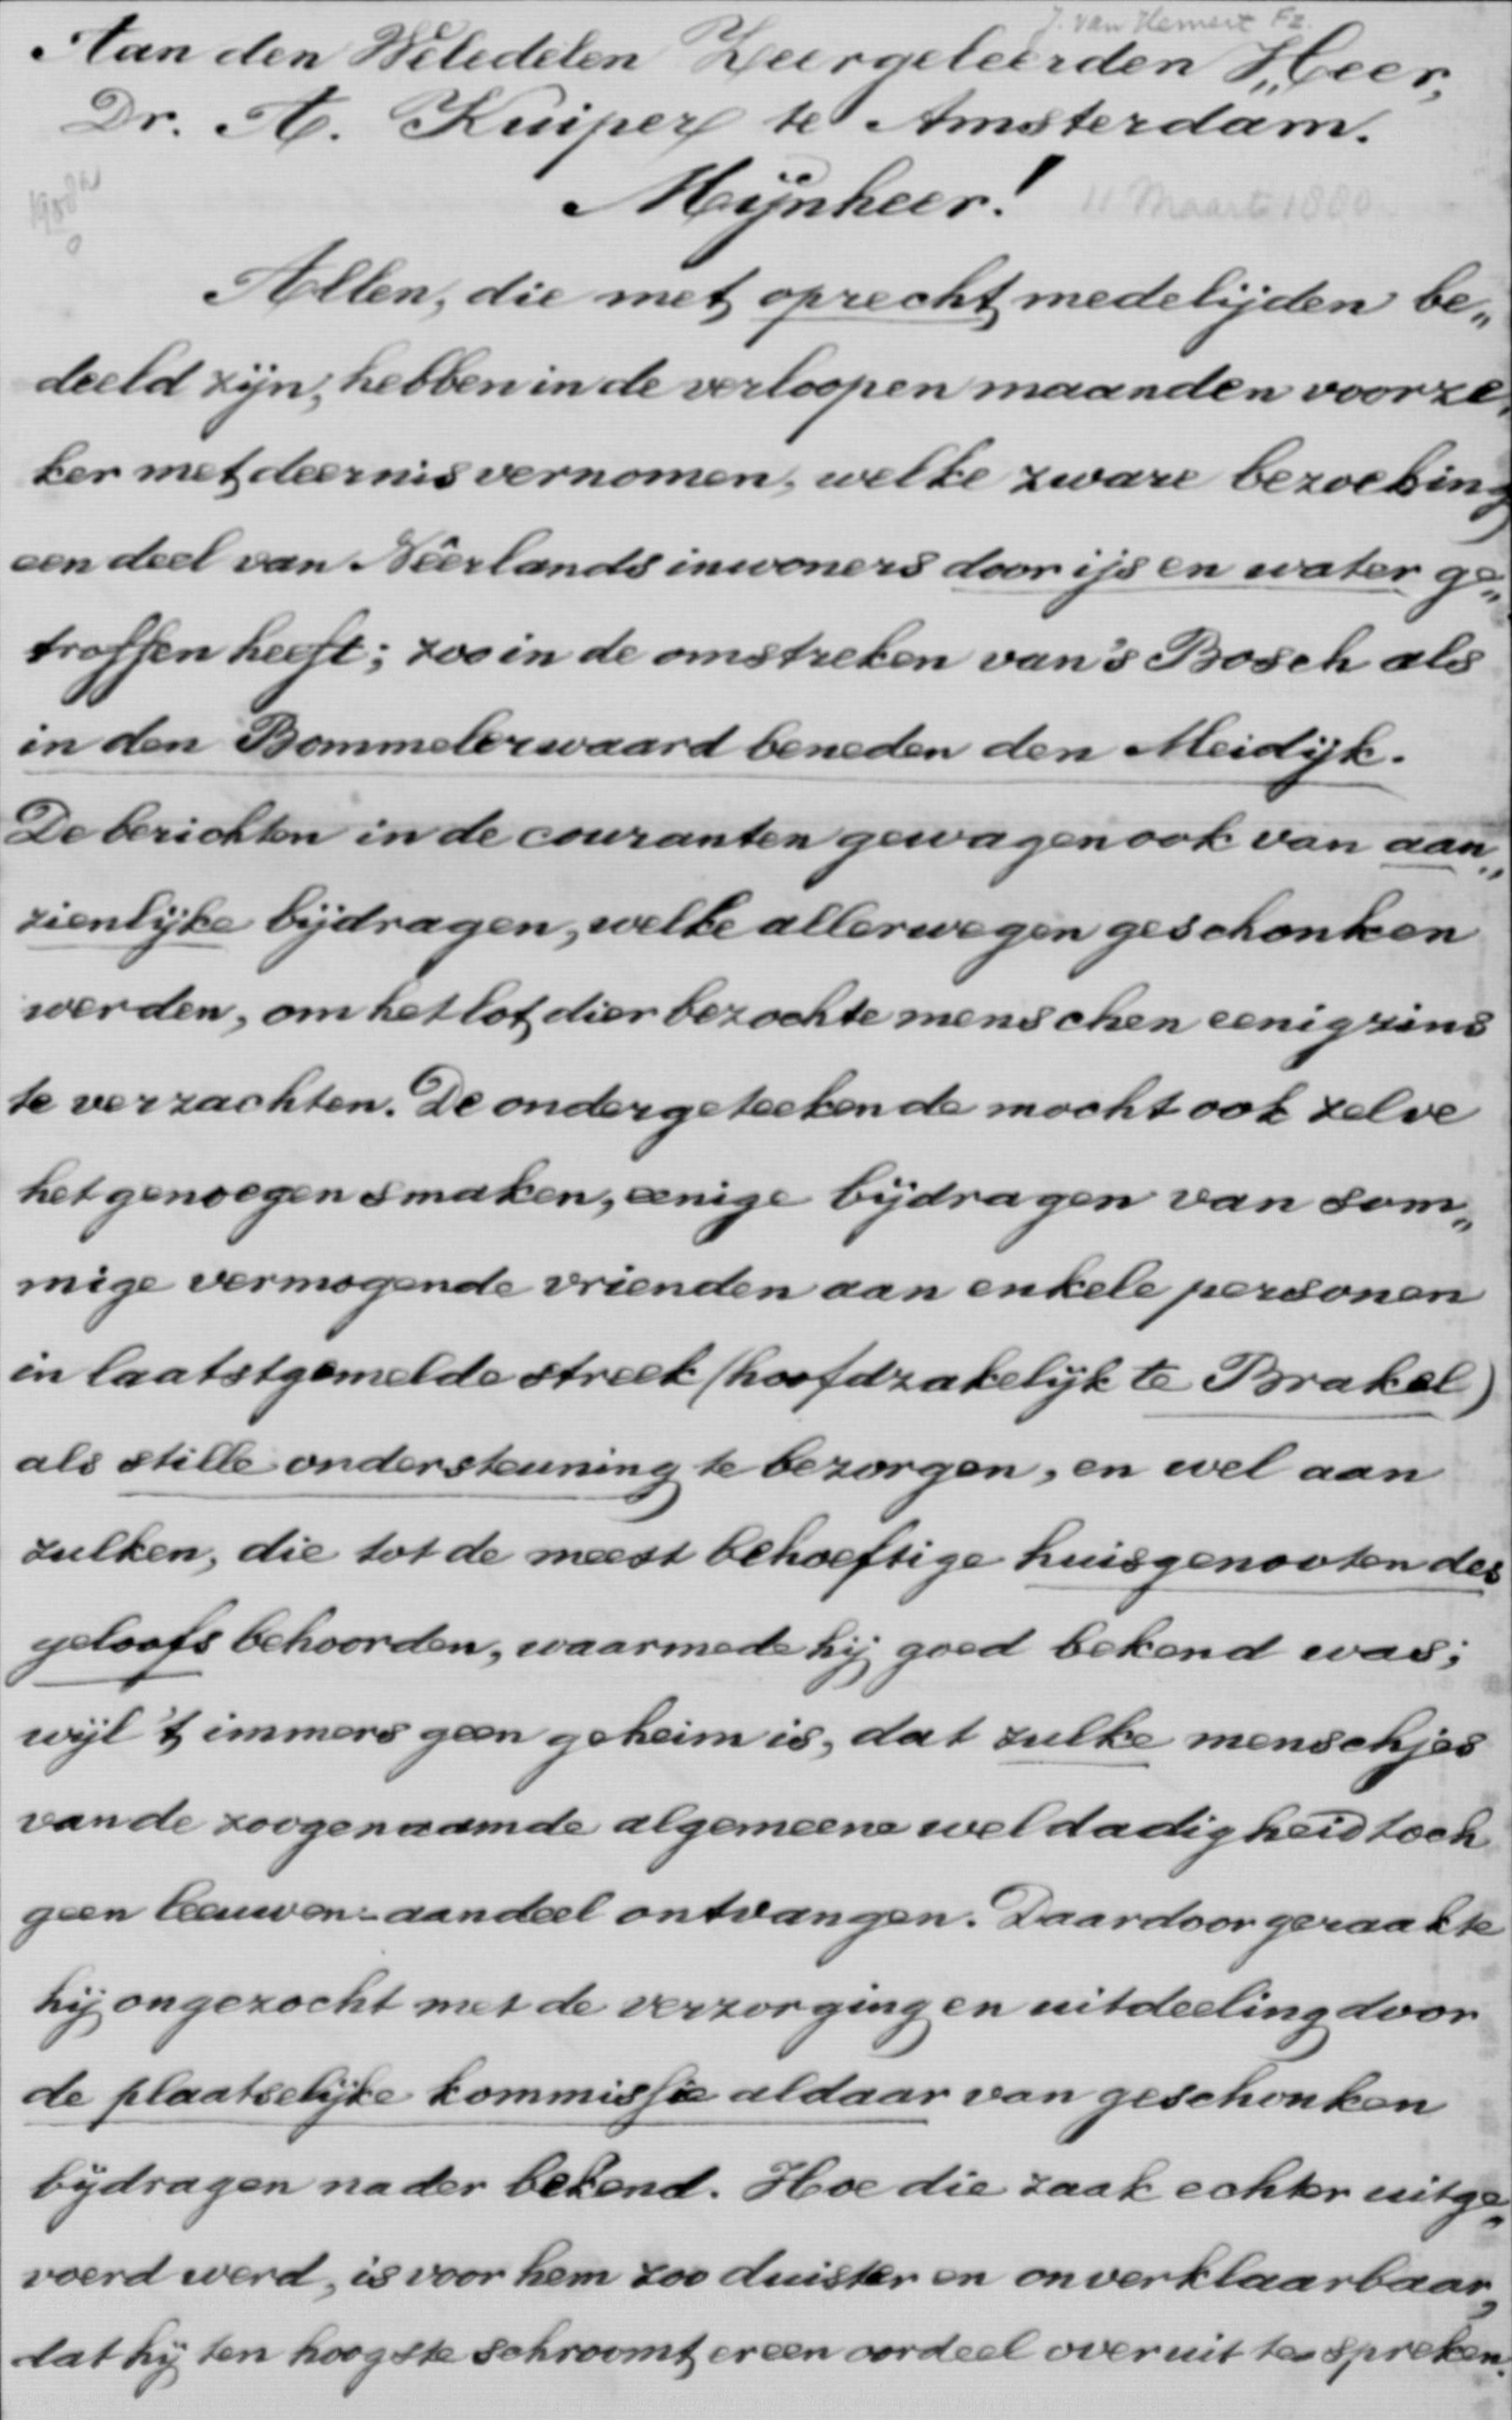 J. van Hemert Fz.
Aan den Weledelen Zeergeleerden Heer,
Dr. A. Kuiper te Amsterdam.
Mijnheer!
11 Maart 1880
Allen, die met oprecht medelijden be„
deeld zijn, hebben in de verloopen maanden voorze„
ker met deernis vernomen, welke zware bezoeking
een deel van Neêrlands inwoners door ijs en water ge„
troffen heeft; zoo in de omstreken van 's Bosch als
in den Bommelerwaard beneden den Meidijk.
De berichten in de couranten gewagen ook van aan„
zienlijke bijdragen, welke allerwegen geschonken
werden, om het lot dier bezochte menschen eenigzins
te verzachten. De ondergeteekende mocht ook zelve
het genoegen smaken, eenige bijdragen van som„
mige vermogende vrienden aan enkele personen
in laatstgemelde streek (hoofdzakelijk te Brakel)
als stille ondersteuning te bezorgen, en wel aan
zulken, die tot de meest behoeftige huisgenooten des
geloofs behoorden, waarmede hij goed bekend was;
wijl 't immers geen geheim is, dat zulke menschjes
van de zoogenaamde algemeene weldadigheid toch
geen leeuwen-aandeel ontvangen. Daardoor geraakte
hij ongezocht met de verzorging en uitdeeling door
de plaatselijke kommissie aldaar van geschonken
bijdragen nader bekend. Hoe die zaak echter uitge„
voerd werd, is voor hem zoo duister en onverklaarbaar,
dat hij ten hoogste schroomt, er een oordeel over uit te spreken.